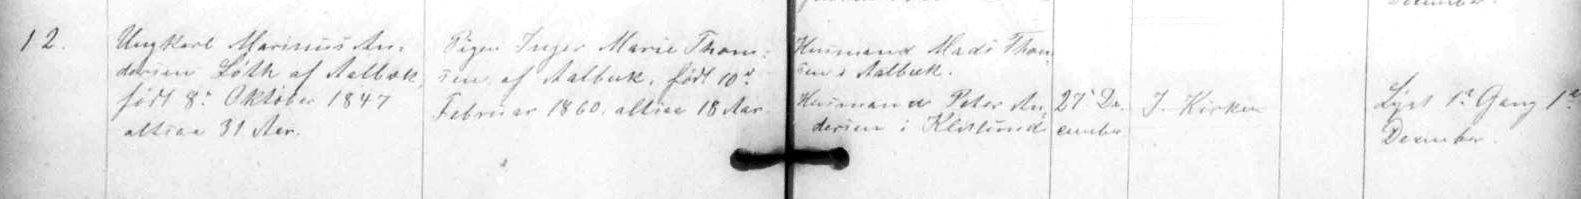 12.
Ungkarl Marinus An-
dersen Løth af Aalbæk,
født 8de Oktober 1847
altsaa 31 Aar.
Pigen Inger Marie Thom-
sen af Aalbæk, født 10de
Februar 1860. altsaa 18 Aar
Husmand Mads Thom-
sen i Aalbæk.
Husmand Peter An-
dersen i Klitlund
27de De-
cember
I. Kirken
Lyst 1ste Gang 1ste
December.